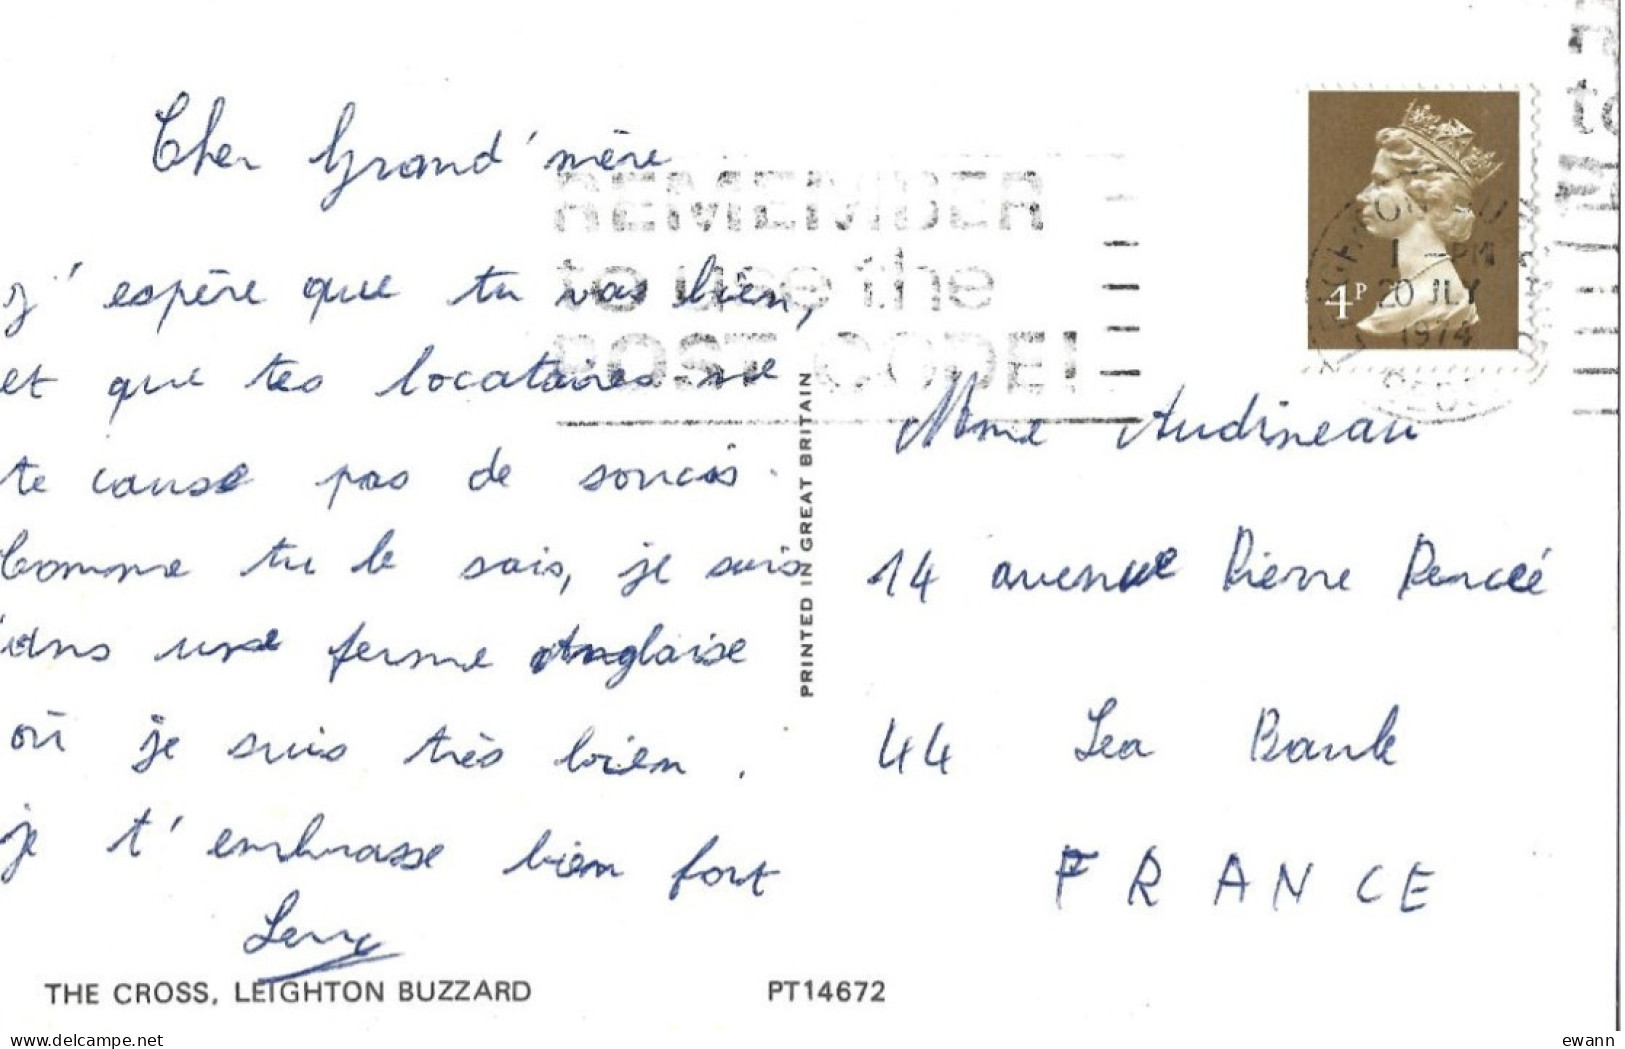 Cher Grand'mère
j'espère que tu vas bien,
et que tes locataires ne
te cause pas de soucis.
Comme tu le sais, je suis
dans une ferme Anglaise
où je suis très bien.
je t'embrasse bien fort
THE CROSS, LEIGHTON BUZZARD
PT14672
PRINTED IN GREAT BRITAIN
REMEMBER
to use the
POST CODE!
4P
1 - PM
20 JLY
1974
Mme Audineau
14 avenue Pierre Percée
44 Lea Baule
FRANCE
ewann